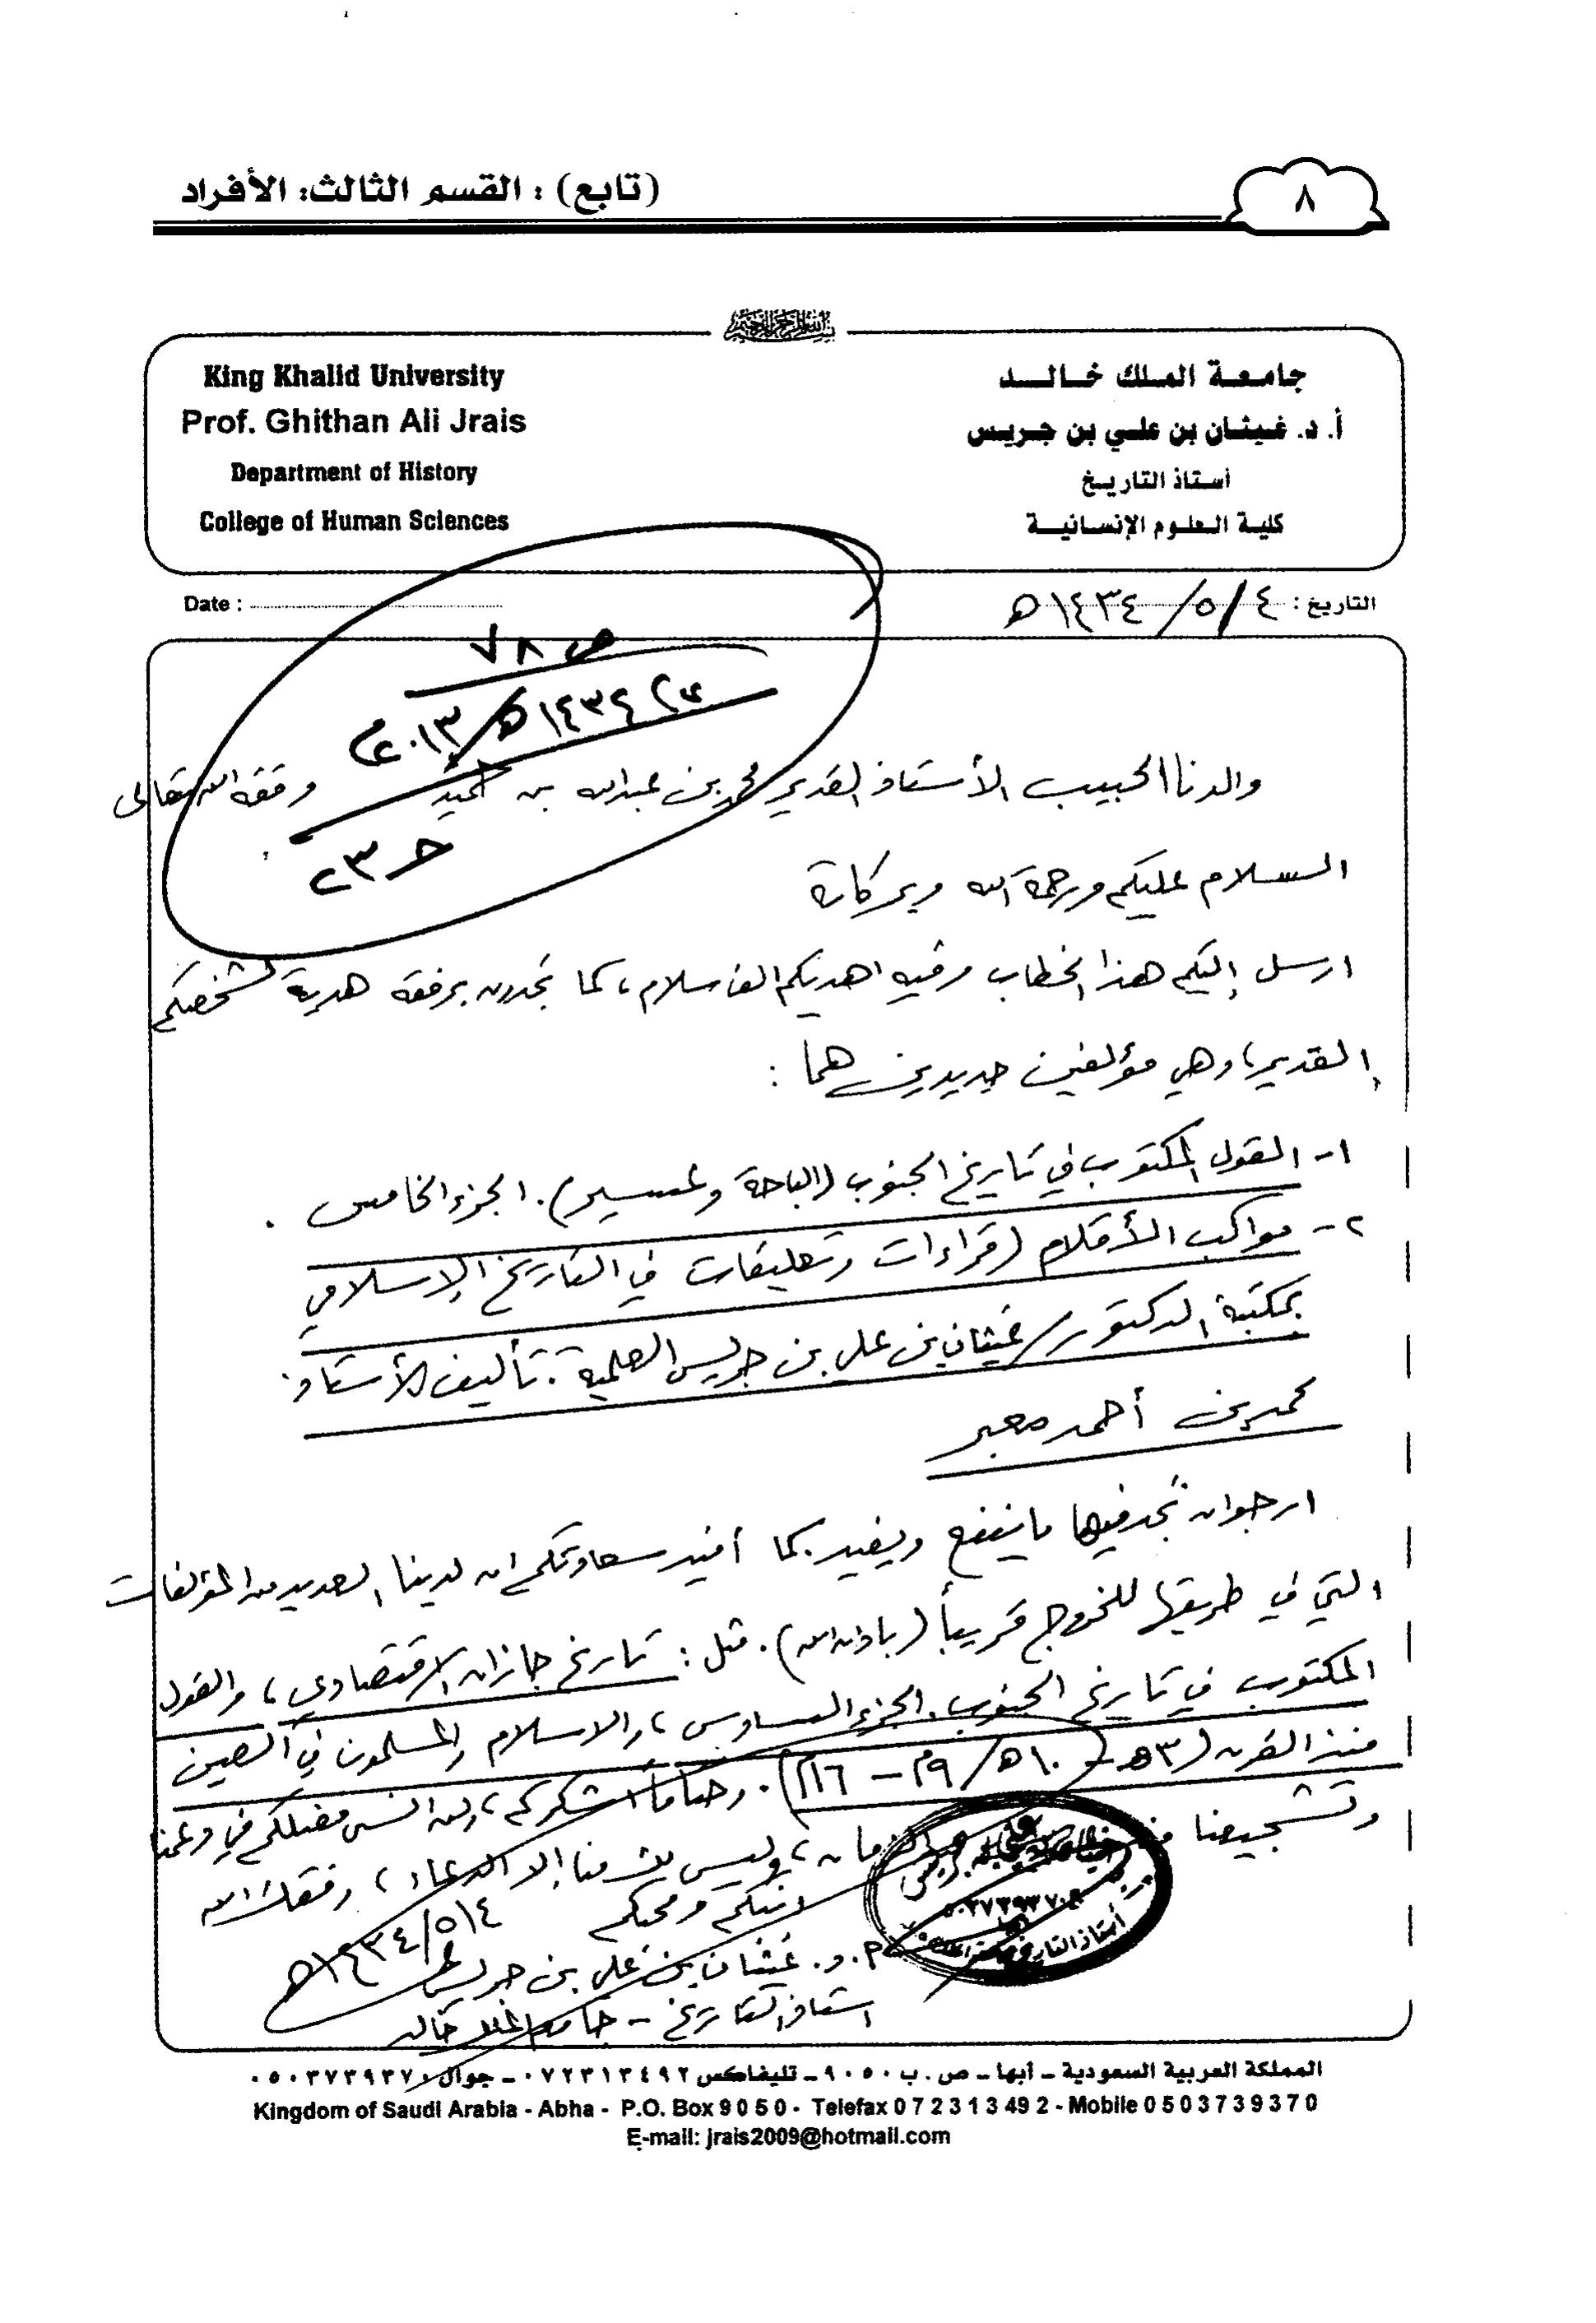 (تابع) : القسم الثالث: الأفراد
٨
King Khalid University
Prof. Ghithan Ali Jrais
Department of History
College of Human Sciences
جامعة الملك خالد
أ. د. غيثان بن علي بن جريس
أستاذ التاريخ
كلية العلوم الإنسانية
Date :
التاريخ : ٤/٥/١٤٣٤ه
ص ٧٨
١٤٣٤ه/٢٠١٣م
ح ٢٣
والدنا الحبيب الأستاذ القدير محمد بن عبدالله بن حميد وفقه الله تعالى
السلام عليكم ورحمة الله وبركاته
ارسل إليكم هذا الخطاب وفيه اهديكم الف سلام، كما تجدون برفقه هدية لشخصكم
القدير، وهي مؤلفين جديدين هما :
١- القول المكتوب في تاريخ الجنوب (الباحة وعسير). الجزء الخامس .
٢- مواكب الأقلام (قراءات وتعليقات في التاريخ الإسلامي
بمكتبة الدكتور/غيثان بن علي بن جريس العلمية. تأليف الأستاذ
محمد بن أحمد معبر
ارجو ان تجد فيها ما ينفع ويفيد. كما أفيد سعادتكم ان لدينا العديد من المؤلفات
التي في طريقها للخروج قريباً (باذن الله). مثل : تاريخ جازان الاقتصادي، والقول
المكتوب في تاريخ الجنوب. الجزء السادس، والاسلام والمسلمون في الصين
منذ القرن (٣ه - ١٠ه/٩م - ١٦م). وختاماً اشكركم، ولن انسى فضلكم في دعمنا
وتشجيعنا الزمان، وليس لك منا إلا الدعاء، وفقك الله
ابنكم ومحبكم
أ. د. غيثان بن علي بن جريس
١٤٣٤/٥/٤ه
استاذ التاريخ - جامعة الملك خالد
٠٥٠٣٧٣٩٣٧٠
المملكة العربية السعودية – أبها – ص . ب ٩٠٥٠ – تليفاكس ٠٧٢٣١٣٤٩٢ – جوال ٠٥٠٣٧٣٩٣٧٠
Kingdom of Saudi Arabia - Abha - P.O. Box 9 0 5 0 - Telefax 0 7 2 3 1 3 49 2 - Mobile 0 5 0 3 7 3 9 3 7 0
E-mail: jrais2009@hotmail.com